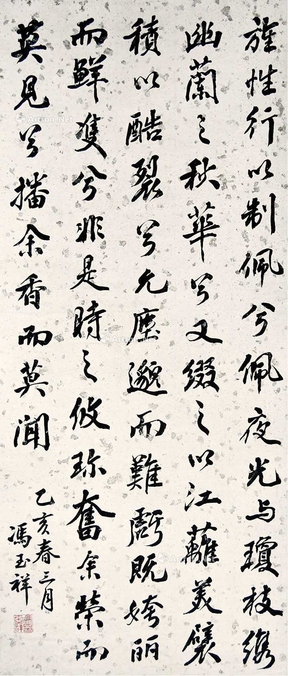 旌性行以制佩兮佩夜光与瓊枝纗
幽蘭之秋華兮又綴之以江蘺美襞
積以酷裂兮允塵邈而難虧既姱丽
而鮮雙兮非是時之攸珎奮余榮而
莫見兮播余香而莫聞
乙亥春三月
馮玉祥